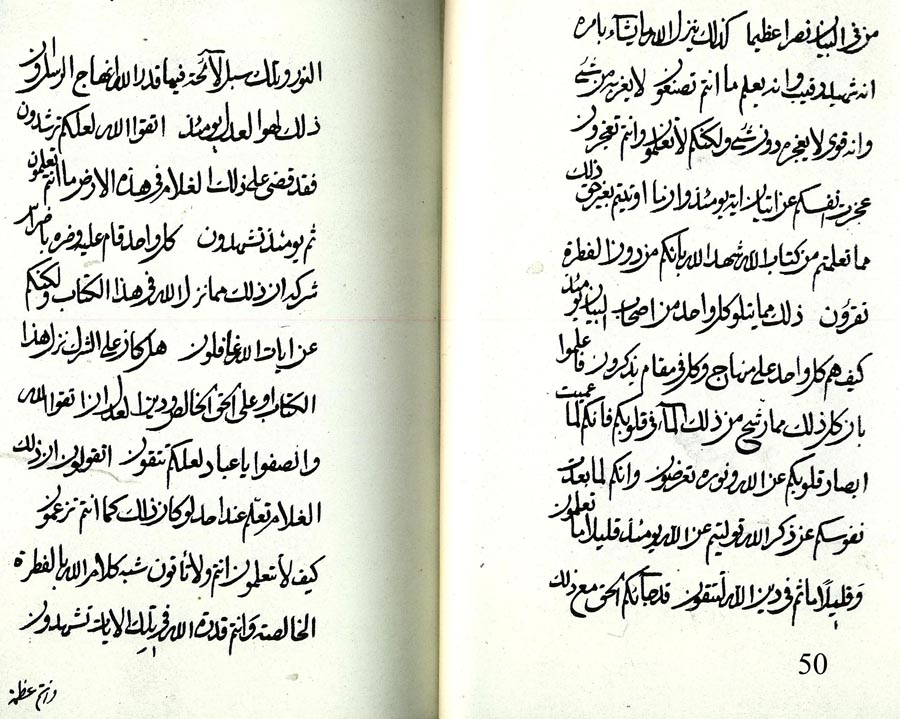 من في البيان نصرا عظيما كذلك ينزل الله ما يشاء بامره
انه شهيد رقيب وانه يعلم ما انتم تصنعون لا يعزب من شئ
وانه قوى لا يعجزه من دونه شئ ولكنكم لا تعلمون وانتم تعجزون
عجزت انفسكم عن اتيان اية يومئذ وان ما اوتيتم بغير حق ذلك
مما تعلمتم من كتاب الله شهد الله بانكم من دون الفطرة
تقرؤن ذلك مما يتلو كل واحد من اصحاب البيان يومئذ
كيف هم كل واحد على منهاج وكل في مقام يذكرون فاعلموا
بان كل ذلك مما رشح من ذلك الماء في قلوبكم فانكم لما عميت
ابصار قلوبكم عن الله ونوره تعرضون وانكم لما بعدت
نفوسكم عن ذكر الله توليتم عن الله يومئذ قليلا ما تعلمون
وقليلا ما انتم في دين الله لتتقون قد جائكم الحق مع ذلك
50
النور وتلك سبل لائحة فيما قدر الله انهاج الرسل وان
ذلك لهو العدل يومئذ اتقوا الله لعلكم ترشدون
فقد قضى على ذلك الغلام في هذه الارض ما انتم تعلمون
ثم يومئذ تشهدون كل واحد قام عليه وضره باضرار
شركه ان ذلك مما نزل الله في هذا الكتاب ولكنكم
عن ايات الله غافلون هل كان على الشرك نزل هذا
الكتاب او على الحق الخالص ودين العدل ان اتقوا الله
وانصفوا يا عباد لعلكم تتقون اتقولون ان ذلك
الغلام تعلم عند احد لو كان ذلك كما انتم تزعمون
كيف لا تتعلمون انتم ولا تأتون شبه كلام الله بالفطرة
الخالصة وانتم قدرة الله في تلك الايات تشهدون
وانتم عظمة